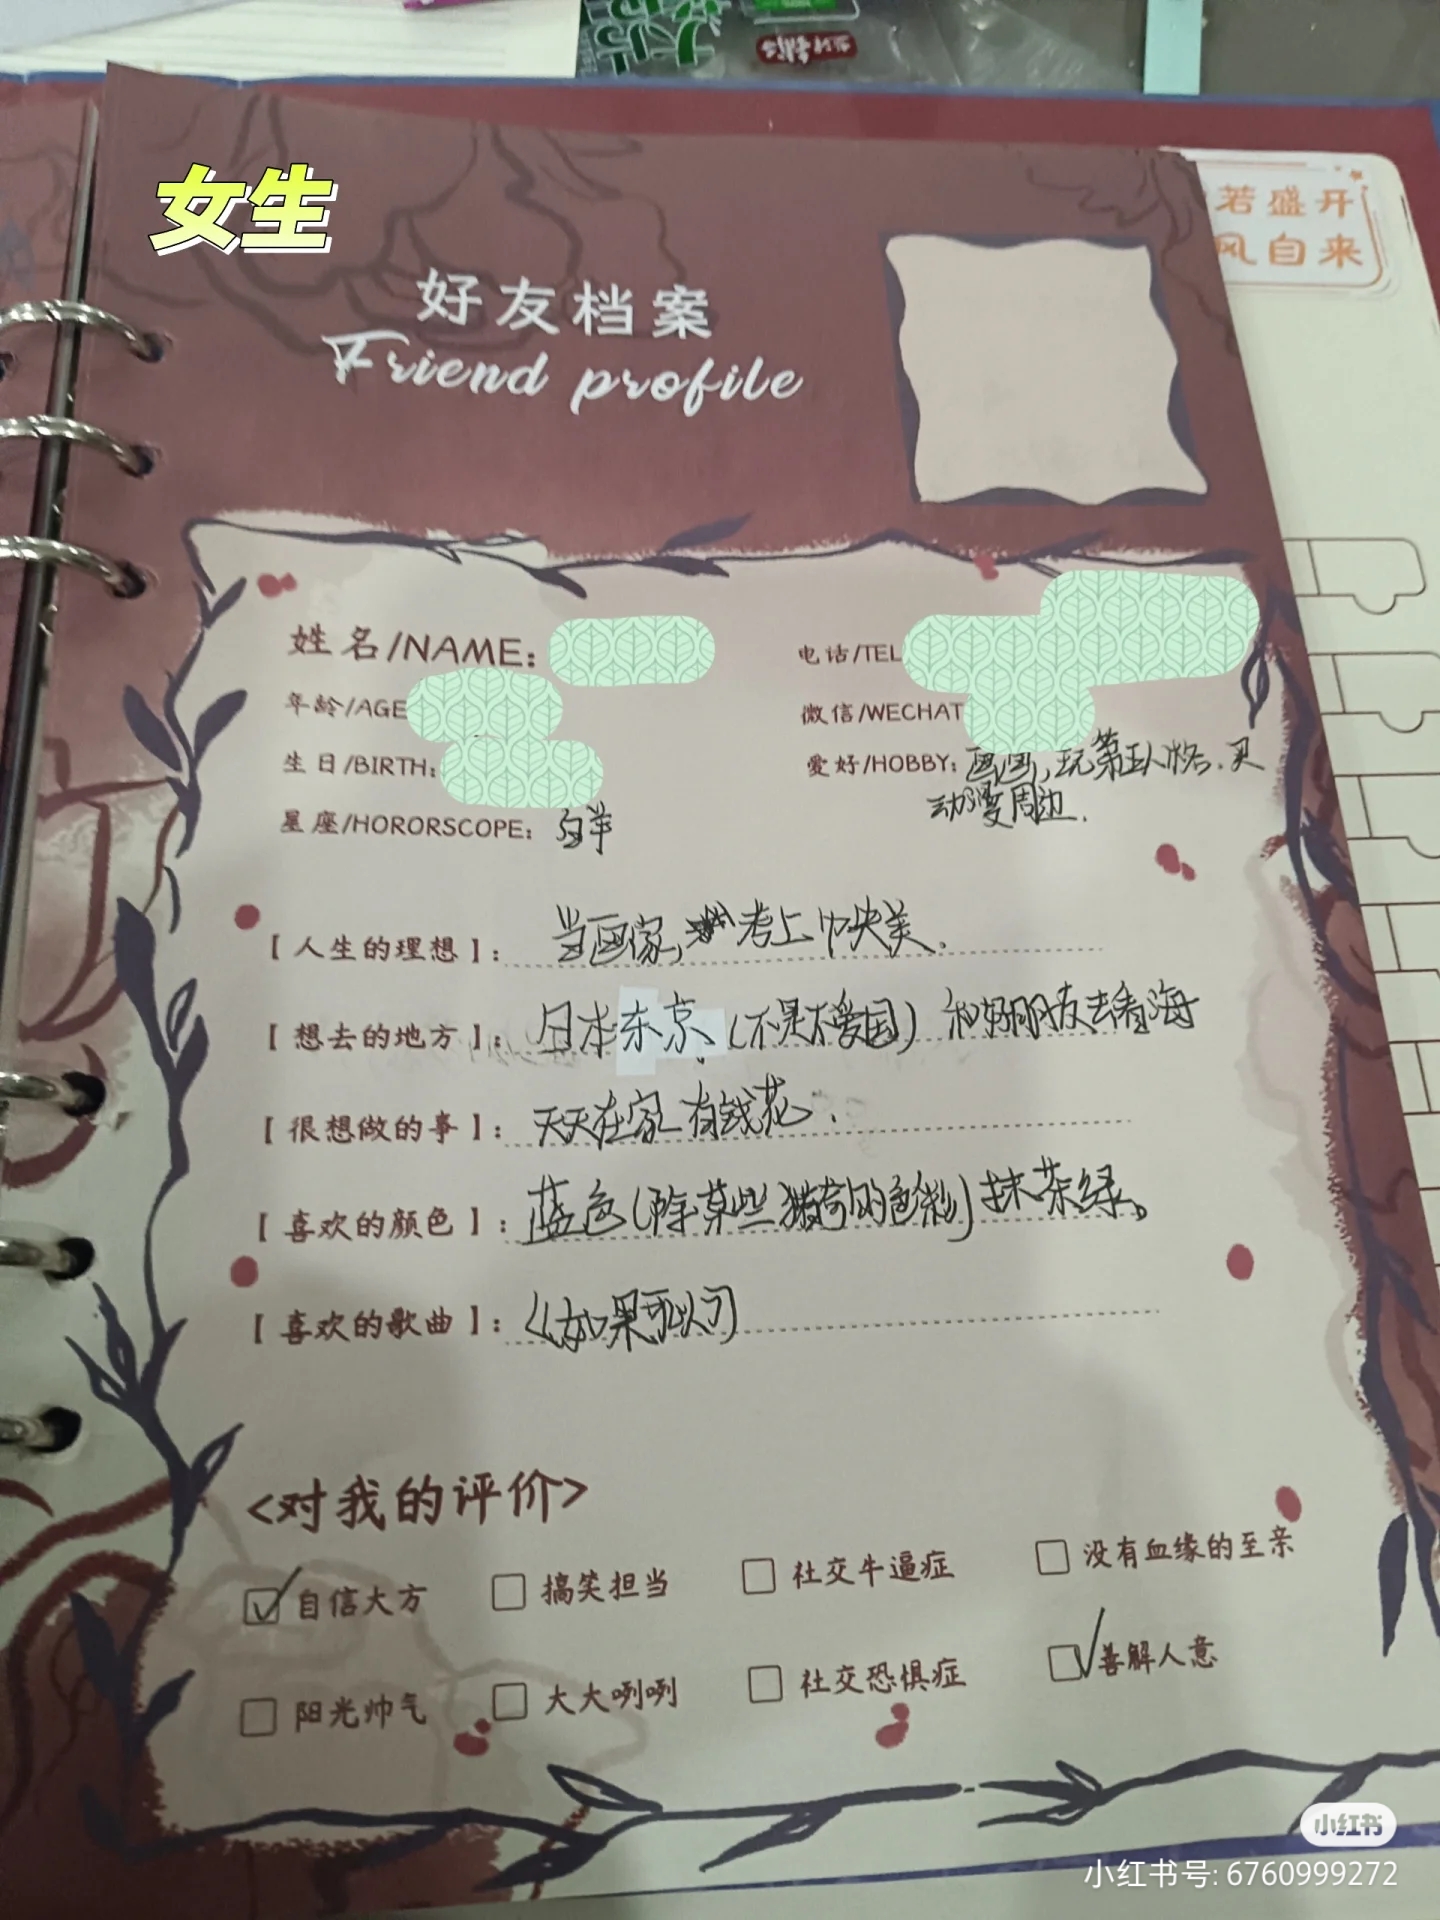 若盛开
风自来
女生
好友档案
Friend profile
姓名/NAME:
电话/TEL
年龄/AGE
微信/WECHAT
生日/BIRTH:
爱好/HOBBY: 画画,玩第五人格、买
动漫周边.
星座/HORORSCOPE: 白羊
【人生的理想】: 当画家, 考上中央美.
【想去的地方】: 日本东京.(不是不爱国) 和好朋友去看海
【很想做的事】: 天天在家 有钱花.
【喜欢的颜色】: 蓝色(除某些猎奇的色彩)抹茶绿。
【喜欢的歌曲】: 《如果可以》
<对我的评价>
自信大方 搞笑担当 社交牛逼症 没有血缘的至亲
阳光帅气 大大咧咧 社交恐惧症 善解人意
小红书
小红书号: 6760999272